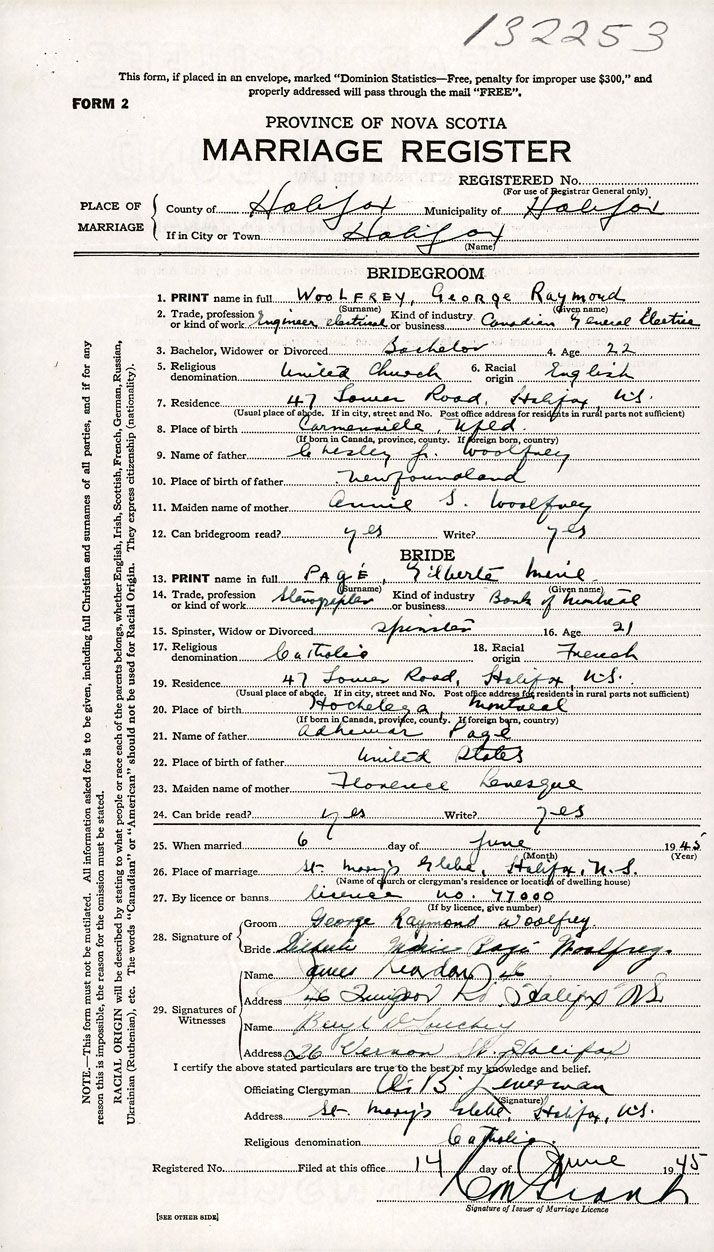 132253
This form, if placed in an envelope, marked "Dominion Statistics—Free, penalty for improper use $300," and
properly addressed will pass through the mail "FREE".
FORM 2
PROVINCE OF NOVA SCOTIA
MARRIAGE REGISTER
REGISTERED No.
(For use of Registrar General only)
PLACE OF MARRIAGE
County of Halifax Municipality of Halifax
If in City or Town Halifax
(Name)
BRIDEGROOM
1. PRINT name in full WOOLFREY, GEORGE Raymond
(Surname) (Given name)
2. Trade, profession or kind of work Engineer electrical Kind of industry or business Canadian General Electric
3. Bachelor, Widower or Divorced Bachelor 4. Age 22
5. Religious denomination United Church 6. Racial origin English
7. Residence 47 Tower Road, Halifax, N.S.
(Usual place of abode. If in city, street and No. Post office address for residents in rural parts not sufficient)
8. Place of birth Carmanville, Nfld.
(If born in Canada, province, county. If foreign born, country)
9. Name of father Chesley Jr. Woolfrey
10. Place of birth of father Newfoundland
11. Maiden name of mother Annie S. Woolfrey
12. Can bridegroom read? yes Write? yes
BRIDE
13. PRINT name in full PAGÉ, Gilberte
(Surname) (Given name)
14. Trade, profession or kind of work Kind of industry or business Bank of Montreal
15. Spinster, Widow or Divorced spinster 16. Age 21
17. Religious denomination Catholic 18. Racial origin French
19. Residence 47 Tower Road, Halifax, N.S.
(Usual place of abode. If in city, street and No. Post office address for residents in rural parts not sufficient)
20. Place of birth Hochelaga, Montreal
(If born in Canada, province, county. If foreign born, country)
21. Name of father Adhemar Pagé
22. Place of birth of father United States
23. Maiden name of mother Florence Levesque
24. Can bride read? yes Write? yes
25. When married 6 day of June 1945
(Month) (Year)
26. Place of marriage St. Mary's Glebe, Halifax, N.S.
(Name of church or clergyman's residence or location of dwelling house)
27. By licence or banns licence no. 77000
(If by licence, give number)
28. Signature of
Groom George Raymond Woolfrey
Bride Marie Pagé Woolfrey.
29. Signatures of Witnesses
Name James Reardon
Address 46 Rd Halifax NS
Name Beryl
Address 26 Vernon St. Halifax
I certify the above stated particulars are true to the best of my knowledge and belief.
Officiating Clergyman
(Signature)
Address St. Mary's Glebe, Halifax, N.S.
Religious denomination Catholic.
Registered No. Filed at this office 14 day of June 1945
Signature of Issuer of Marriage Licence
[SEE OTHER SIDE]
NOTE.—This form must not be mutilated. All information asked for is to be given, including full Christian and surnames of all parties, and if for any
reason this is impossible, the reason for the omission must be stated.
RACIAL ORIGIN will be described by stating to what people or race each of the parents belongs, whether English, Irish, Scottish, French, German, Russian,
Ukrainian (Ruthenian), etc. The words "Canadian" or "American" should not be used for Racial Origin. They express citizenship (nationality).